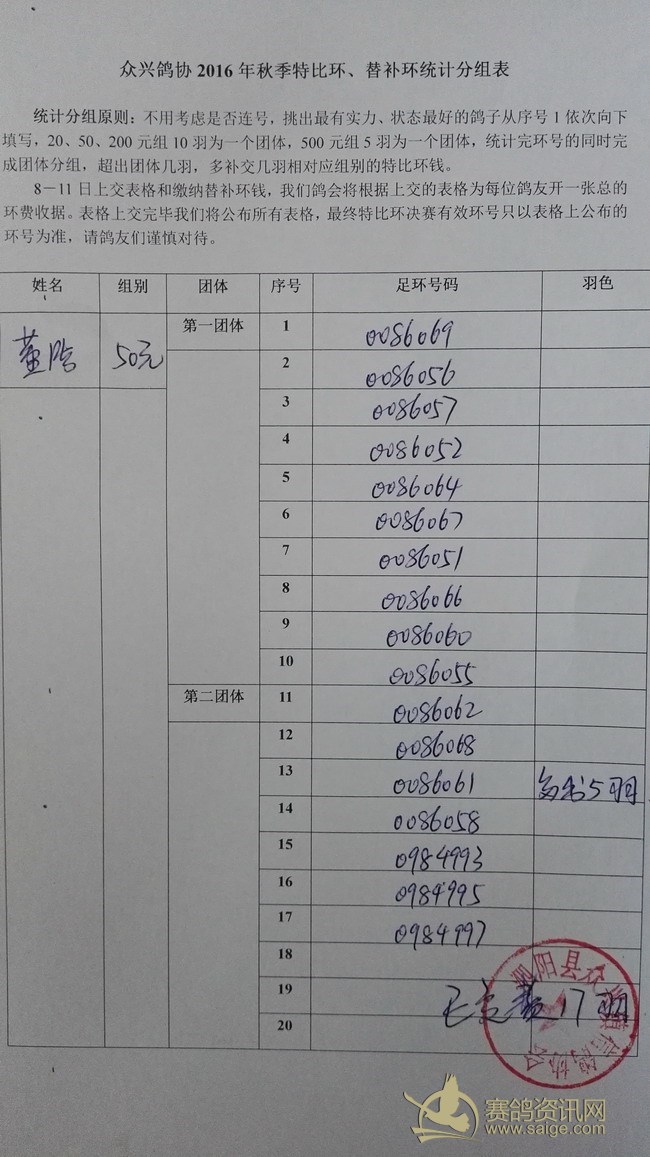 众兴鸽协 2016 年秋季特比环、替补环统计分组表
统计分组原则：不用考虑是否连号，挑出最有实力、状态最好的鸽子从序号 1 依次向下
填写，20、50、200 元组 10 羽为一个团体，500 元组 5 羽为一个团体，统计完环号的同时完
成团体分组，超出团体几羽，多补交几羽相对应组别的特比环钱。
8－11 日上交表格和缴纳替补环钱，我们鸽会将根据上交的表格为每位鸽友开一张总的
环费收据。表格上交完毕我们将公布所有表格，最终特比环决赛有效环号只以表格上公布的
环号为准，请鸽友们谨慎对待。
姓名 组别 团体 序号 足环号码 羽色
董 50元 第一团体 1 0086069
2 0086056
3 0086057
4 0086052
5 0086064
6 0086067
7 0086051
8 0086066
9 0086060
10 0086055
第二团体 11 0086062
12 0086068
13 0086061 5羽
14 0086058
15 0984993
16 0984995
17 0984997
18
19 17羽
20
泗阳县众兴镇信鸽协会
赛鸽资讯网
www.saige.com